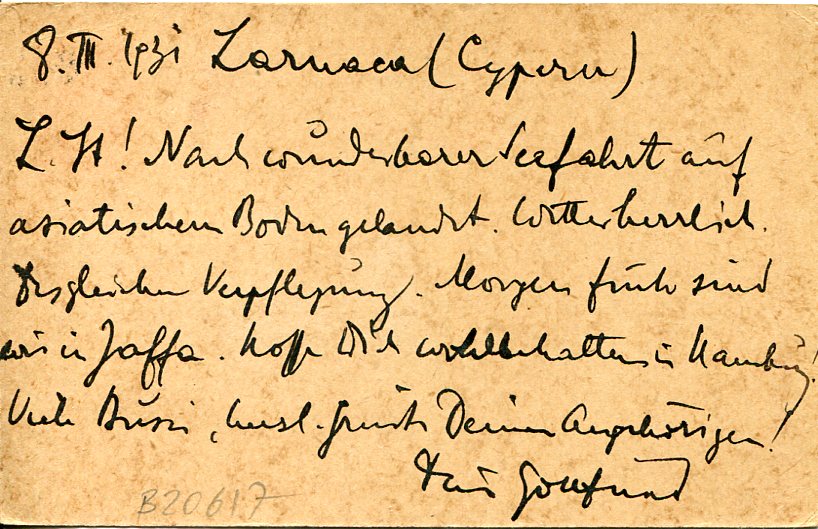 8. III. 1931 Larnaca (Cypern)
L. H! Nach wunderbarer Seefahrt auf
asiatischem Boden gelandet. Wetter herrlich.
Desgleichen Verpflegung. Morgen früh sind
wir in Jaffa. Hoffe Dich wohlbehalten in Hamburg!
Viele Bussi, herzl. Grüße Deinen Angehörigen!
Dein Gottfried
B20617